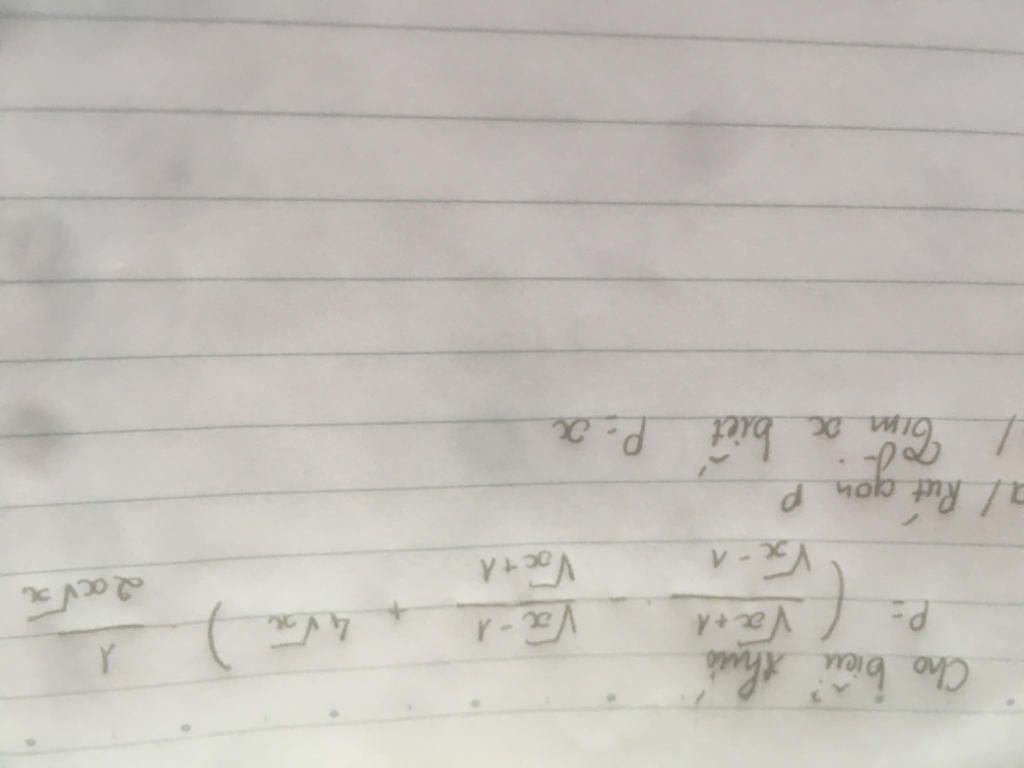 Cho biểu thức
P = ( \frac{√x + 1}{√x - 1} - \frac{√x - 1}{√x + 1} + 4√x ) . \frac{1}{2x√x}
a/ Rút gọn P
/ Tìm x biết P = x